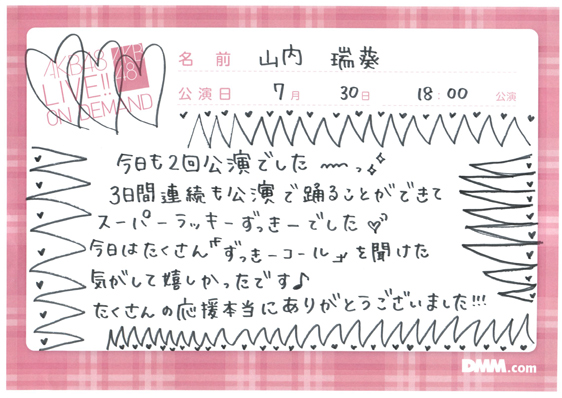 AKB48
LIVE!!
ON DEMAND
AKB
48
名 前 山内 瑞葵
公演日 7月 30日 18:00 公演
今日も2回公演でした 〜〜っ
3日間連続も公演で踊ることができて
スーパーラッキーずっきーでした
今日はたくさん「ずっきーコール」を聞けた
気がして嬉しかったです♪
たくさんの応援本当にありがとうございました!!!
DMM.com